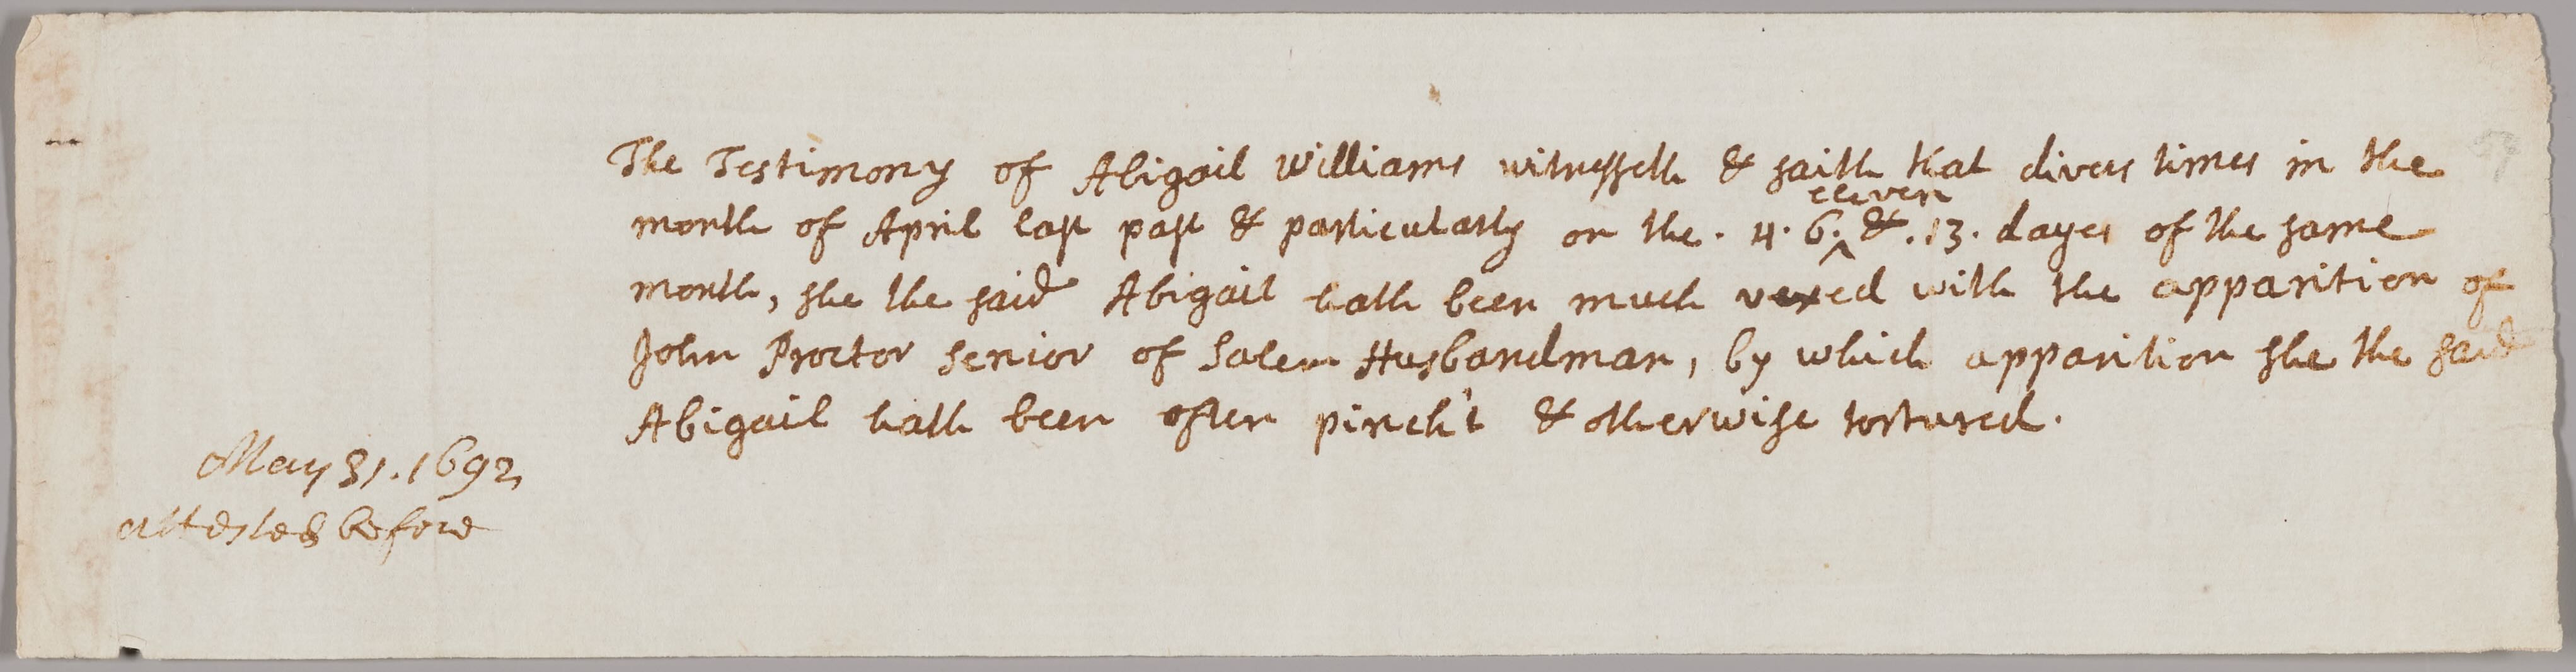 The Testimony of Abigail Williams witnesseth & saith that divers times in the
month of April last past & particularly on the . 4 . 6. ^ eleven & . 13 . dayes of the same
month, she the said Abigail hath been much vexed with the apparition of
John Proctor senior of Salem Husbandman, by which apparition she the said
Abigail hath been often pinch't & otherwise tortured.
May 31. 1692
attested before